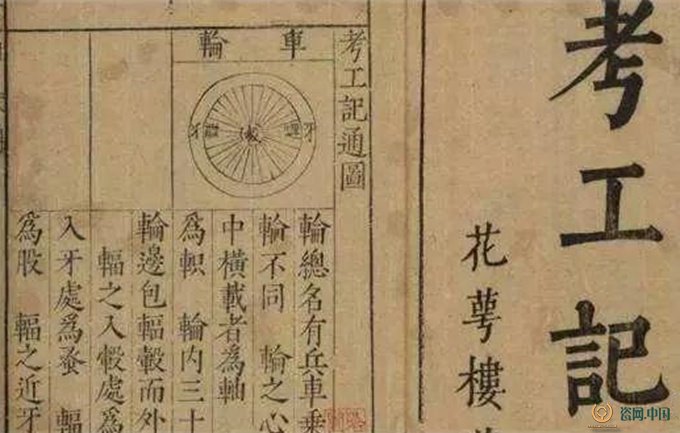 考工記
花萼樓
考工記通圖
車輪
牙 轂 牙
輪總名有兵車乘
輪不同 輪之心
中橫載者為軸
為軹 輪内三十
輪邊包輻轂而外
輻之入轂處為
入牙處為蚤 輻
為股 輻之近牙
瓷网.中国